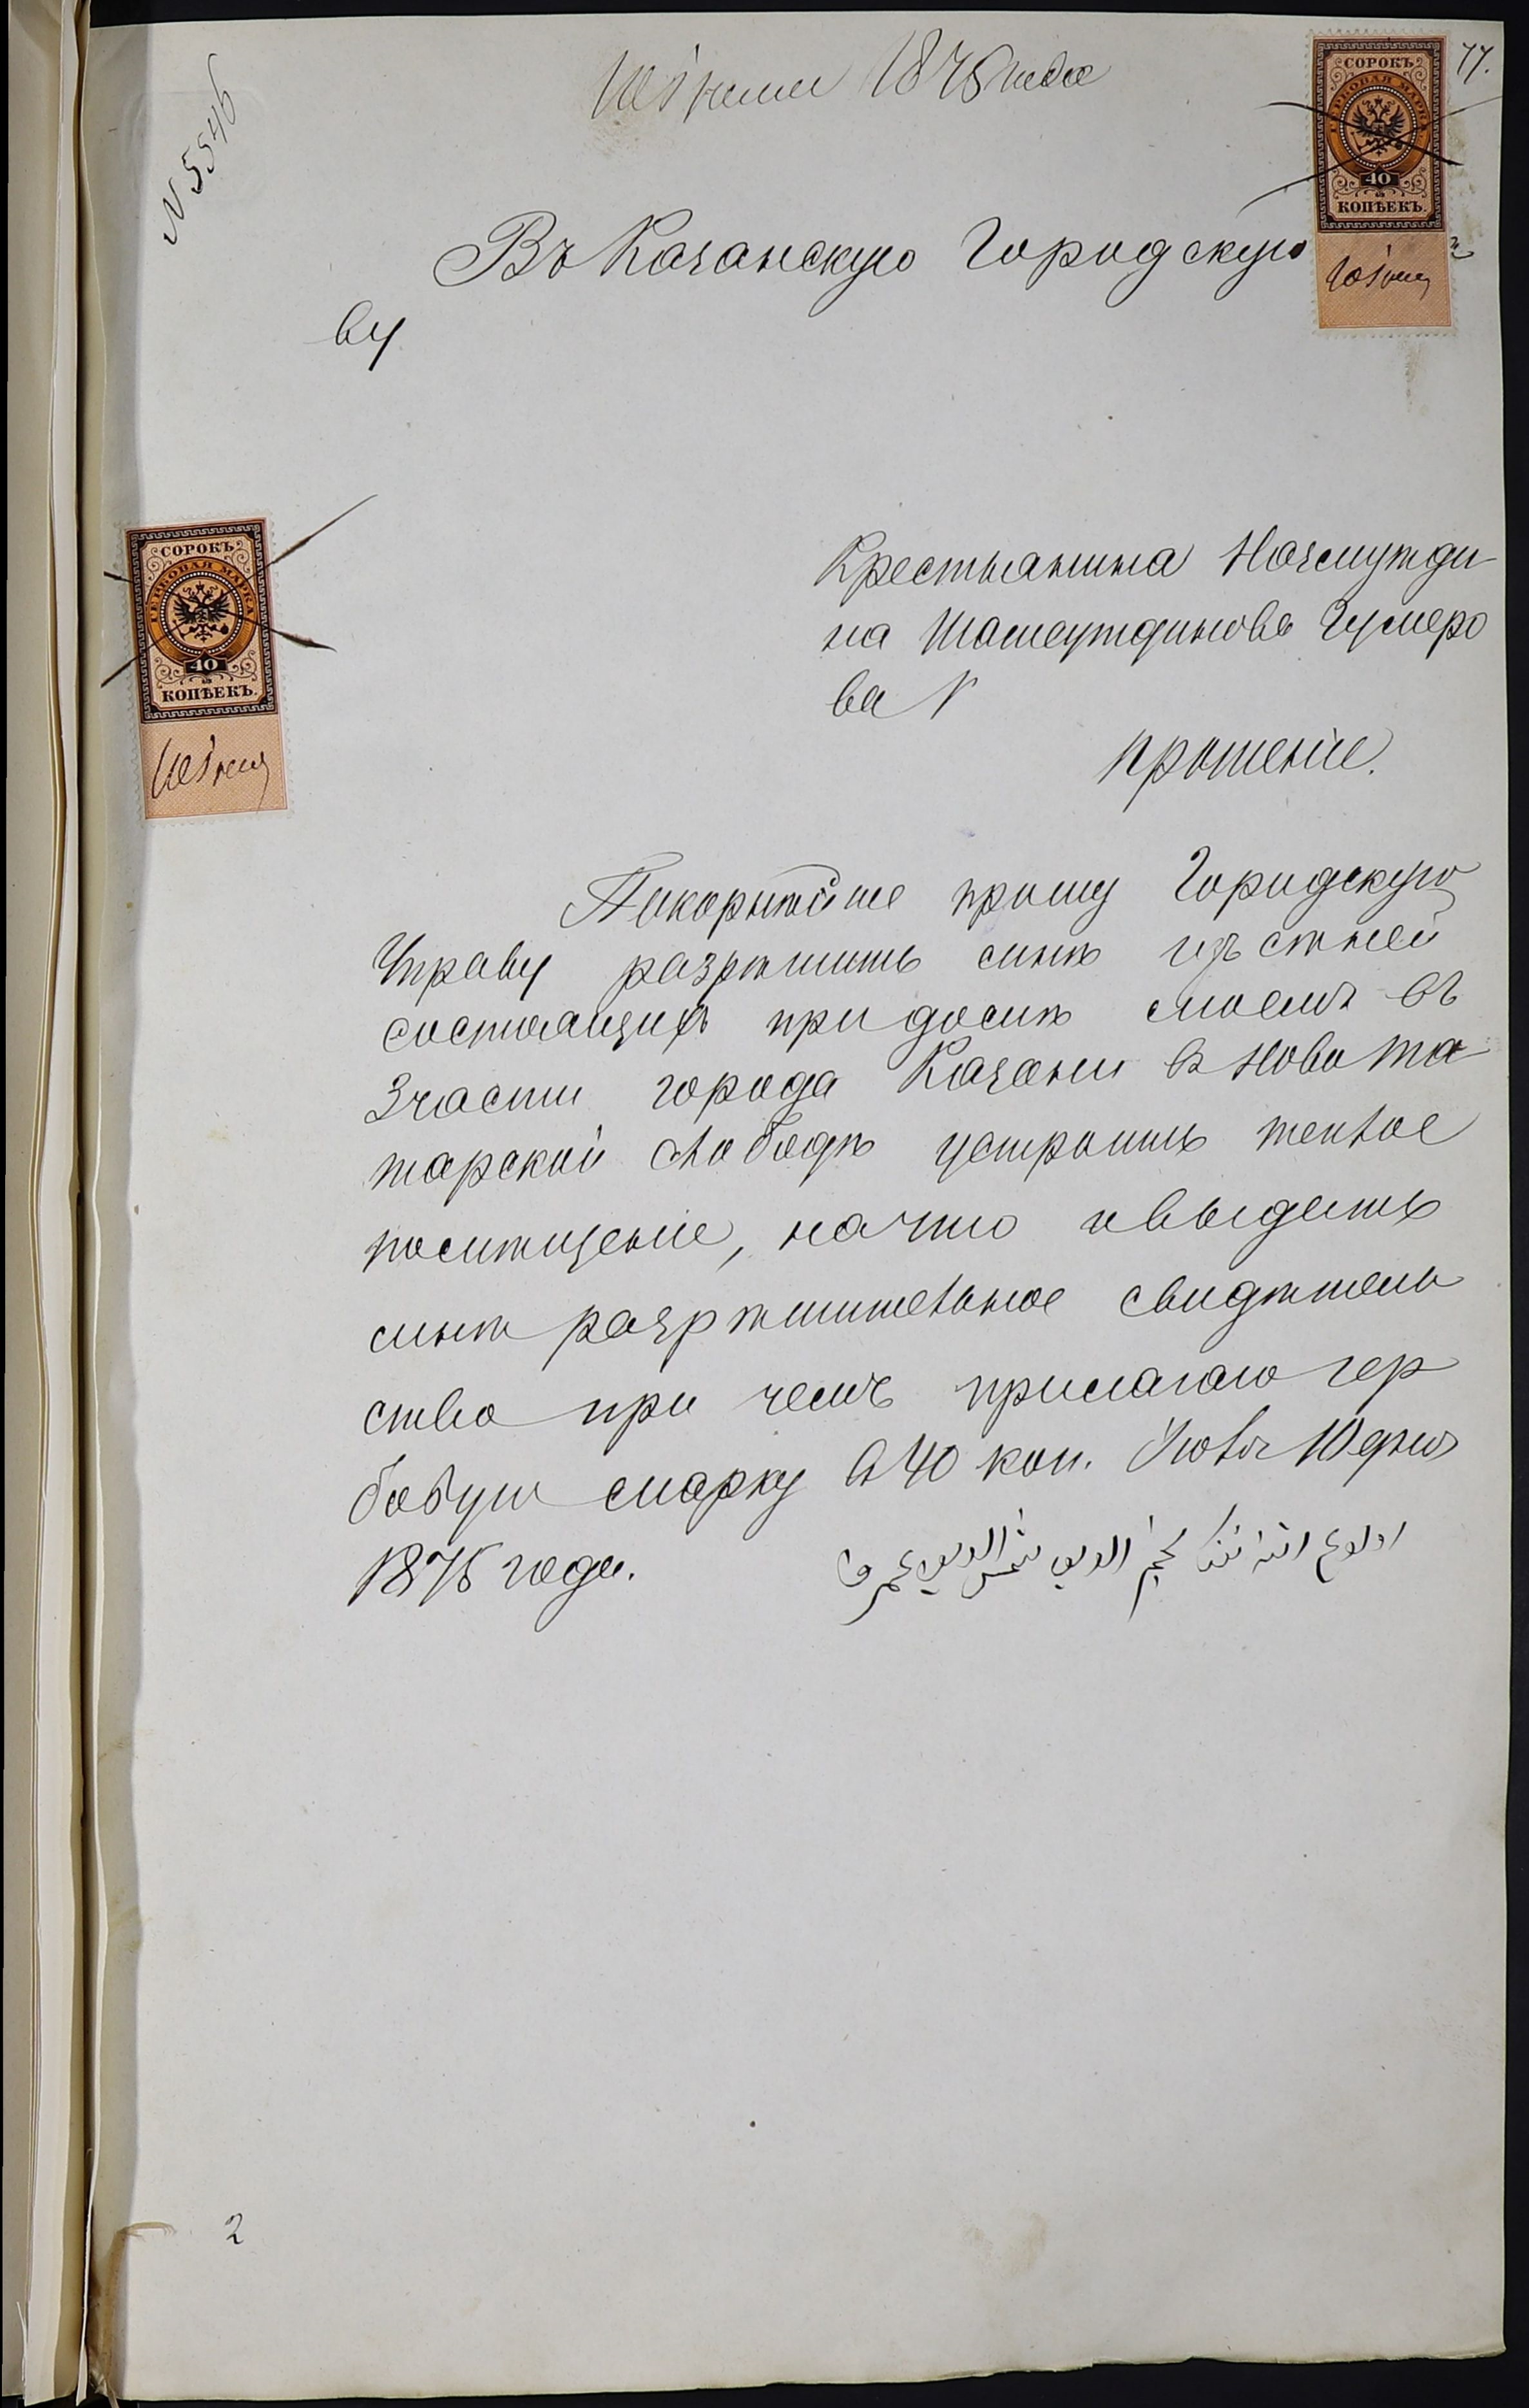 77.
N 5546
1875 года
СОРОКЪ
ГЕРБОВАЯ МАРКА
40
КОПѢЕКЪ.
Въ Казанскую Городскую
ву
СОРОКЪ
ГЕРБОВАЯ МАРКА
40
КОПѢЕКЪ.
Крестьянина Назмутди
на Шамсутдинова Гумеро
ва
прошеніе.
Покорнѣйше прошу Городскую
Управу разрѣшить мнѣ изъ сѣней
состоящихъ при домѣ моемъ въ
3 части города Казани в Ново та
тарской слободѣ устроить теплое
помѣщеніе, на что и выдать
мнѣ разрѣшительное свидѣтель
ство при чемъ прилагаю гер
бовую марку в 40 коп. Июля 10 дня
1875 года.
نجم الدين شمس الدين عمروف
2